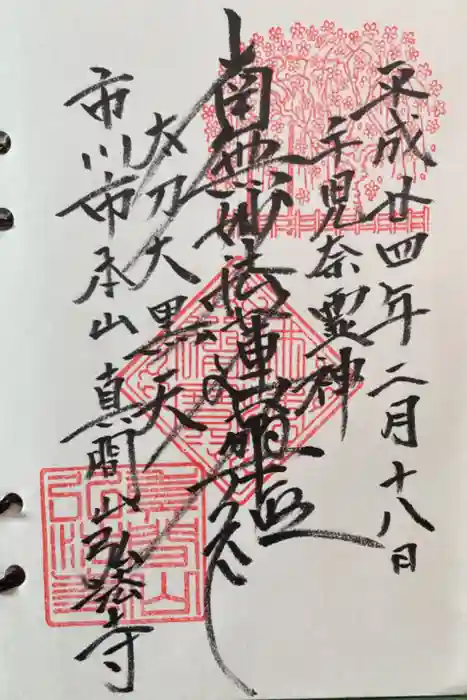 平成廿四年二月十八日
手児奈霊神
南無妙法蓮華経
太刀大黒天
市川市本山真間山弘法寺